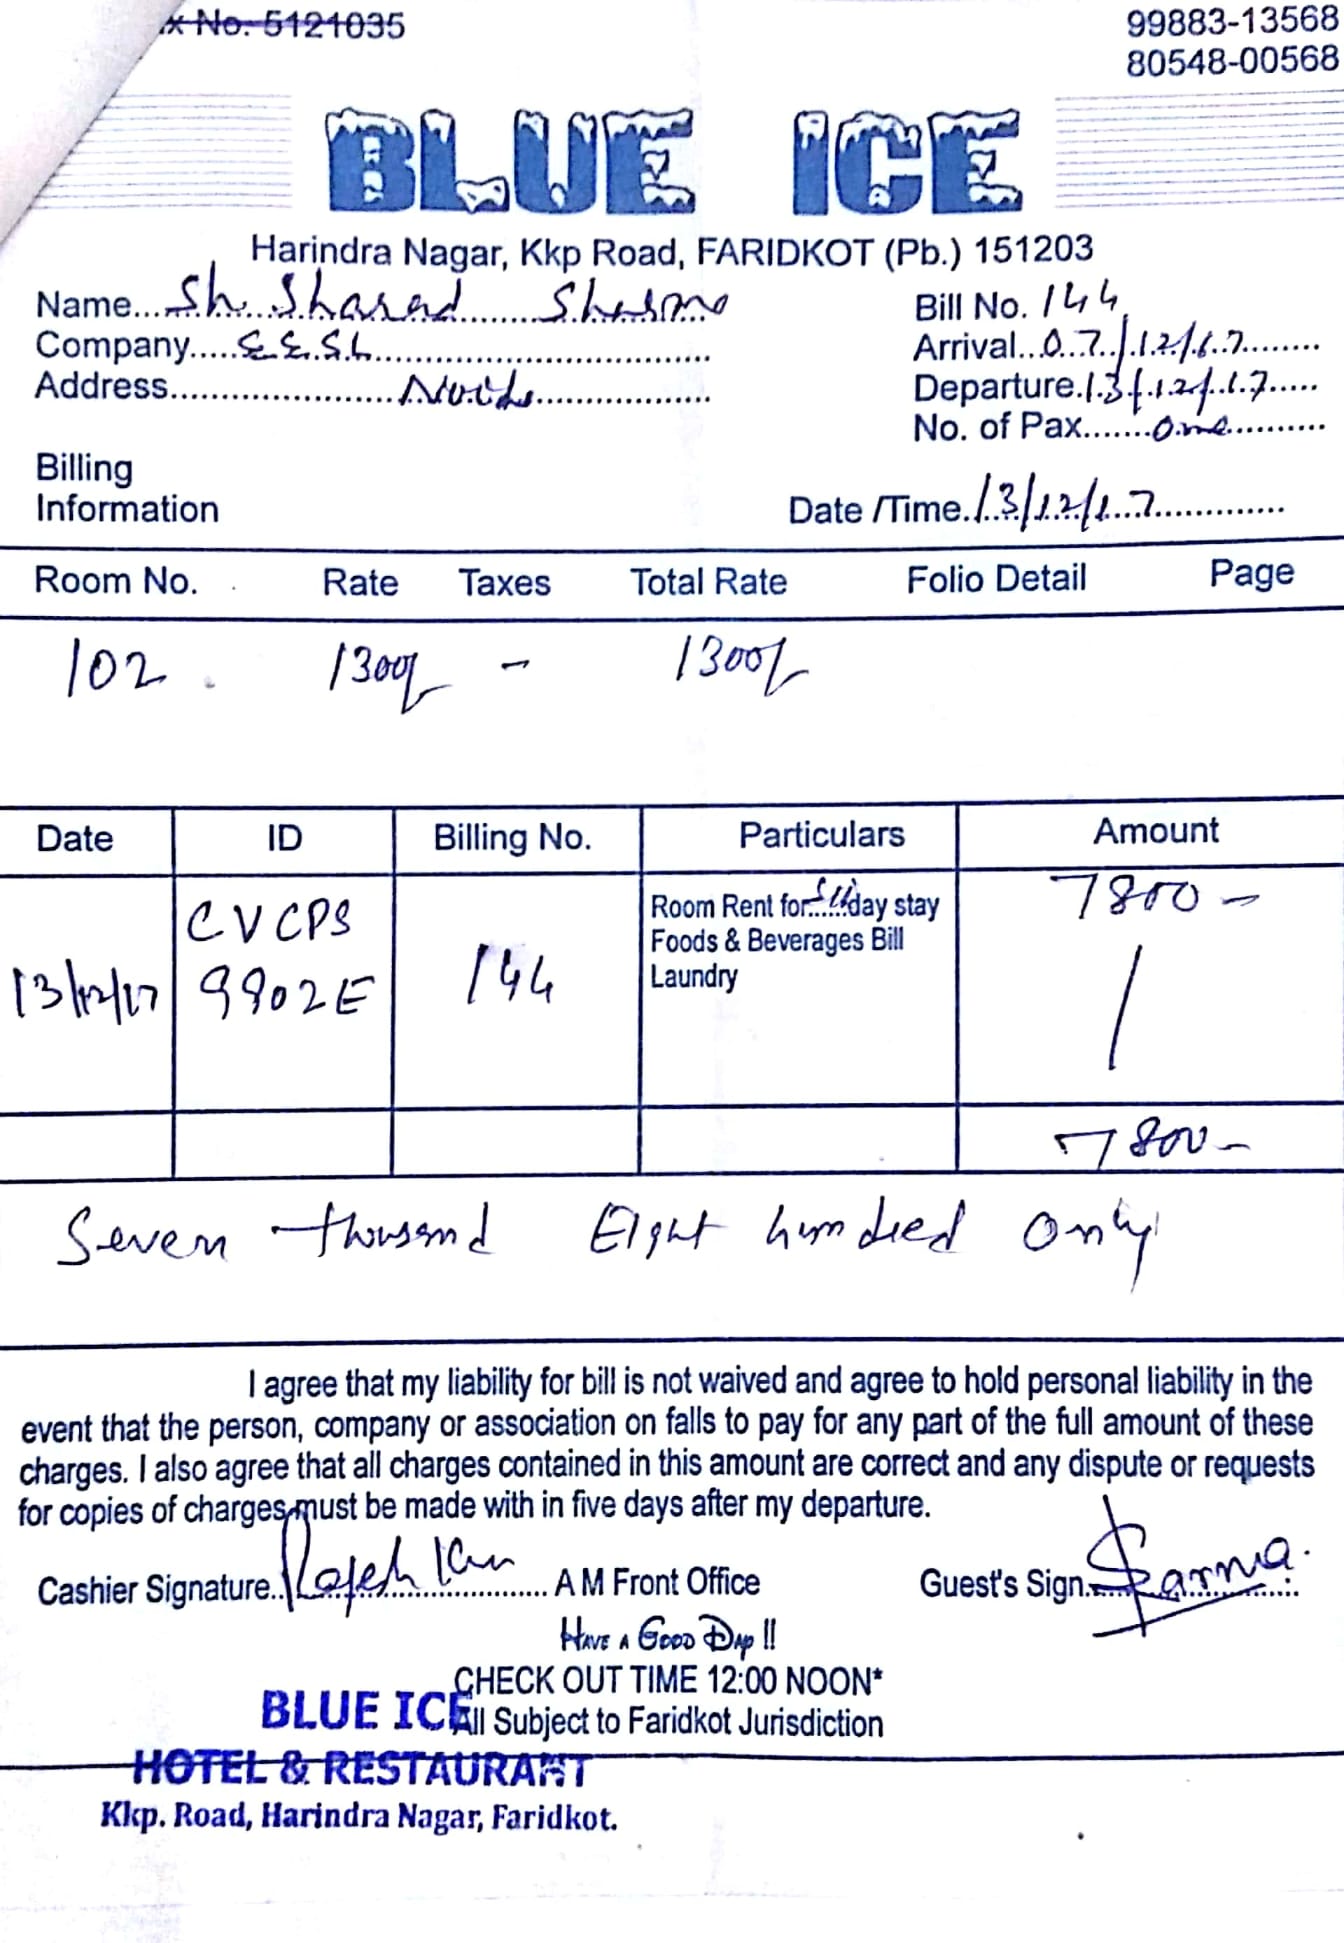 x No. 5121035
99883-13568
80548-00568
BLUE ICE
Harindra Nagar, Kkp Road, FARIDKOT (Pb.) 151203
Name... Sh. Sharad Sharma
Bill No. 144
Company..... E.E.S.L
Arrival... 07/12/17
Address..... Noida
Departure. 13/12/17
No. of Pax....... one
Billing
Information
Date /Time. 13/12/17
Room No. Rate Taxes Total Rate Folio Detail Page
102 1300/- - 1300/-
Date ID Billing No. Particulars Amount
13/12/17 CVCPS 9902E 144 Room Rent for......day stay 7800 -
Foods & Beverages Bill
Laundry
7800 -
Seven thousand Eight hundred Only
I agree that my liability for bill is not waived and agree to hold personal liability in the
event that the person, company or association on falls to pay for any part of the full amount of these
charges. I also agree that all charges contained in this amount are correct and any dispute or requests
for copies of charges must be made with in five days after my departure.
Cashier Signature.. A M Front Office Guest's Sign. Sarma.
Have a Good Day !!
CHECK OUT TIME 12:00 NOON*
All Subject to Faridkot Jurisdiction
BLUE ICE
HOTEL & RESTAURANT
Kkp. Road, Harindra Nagar, Faridkot.